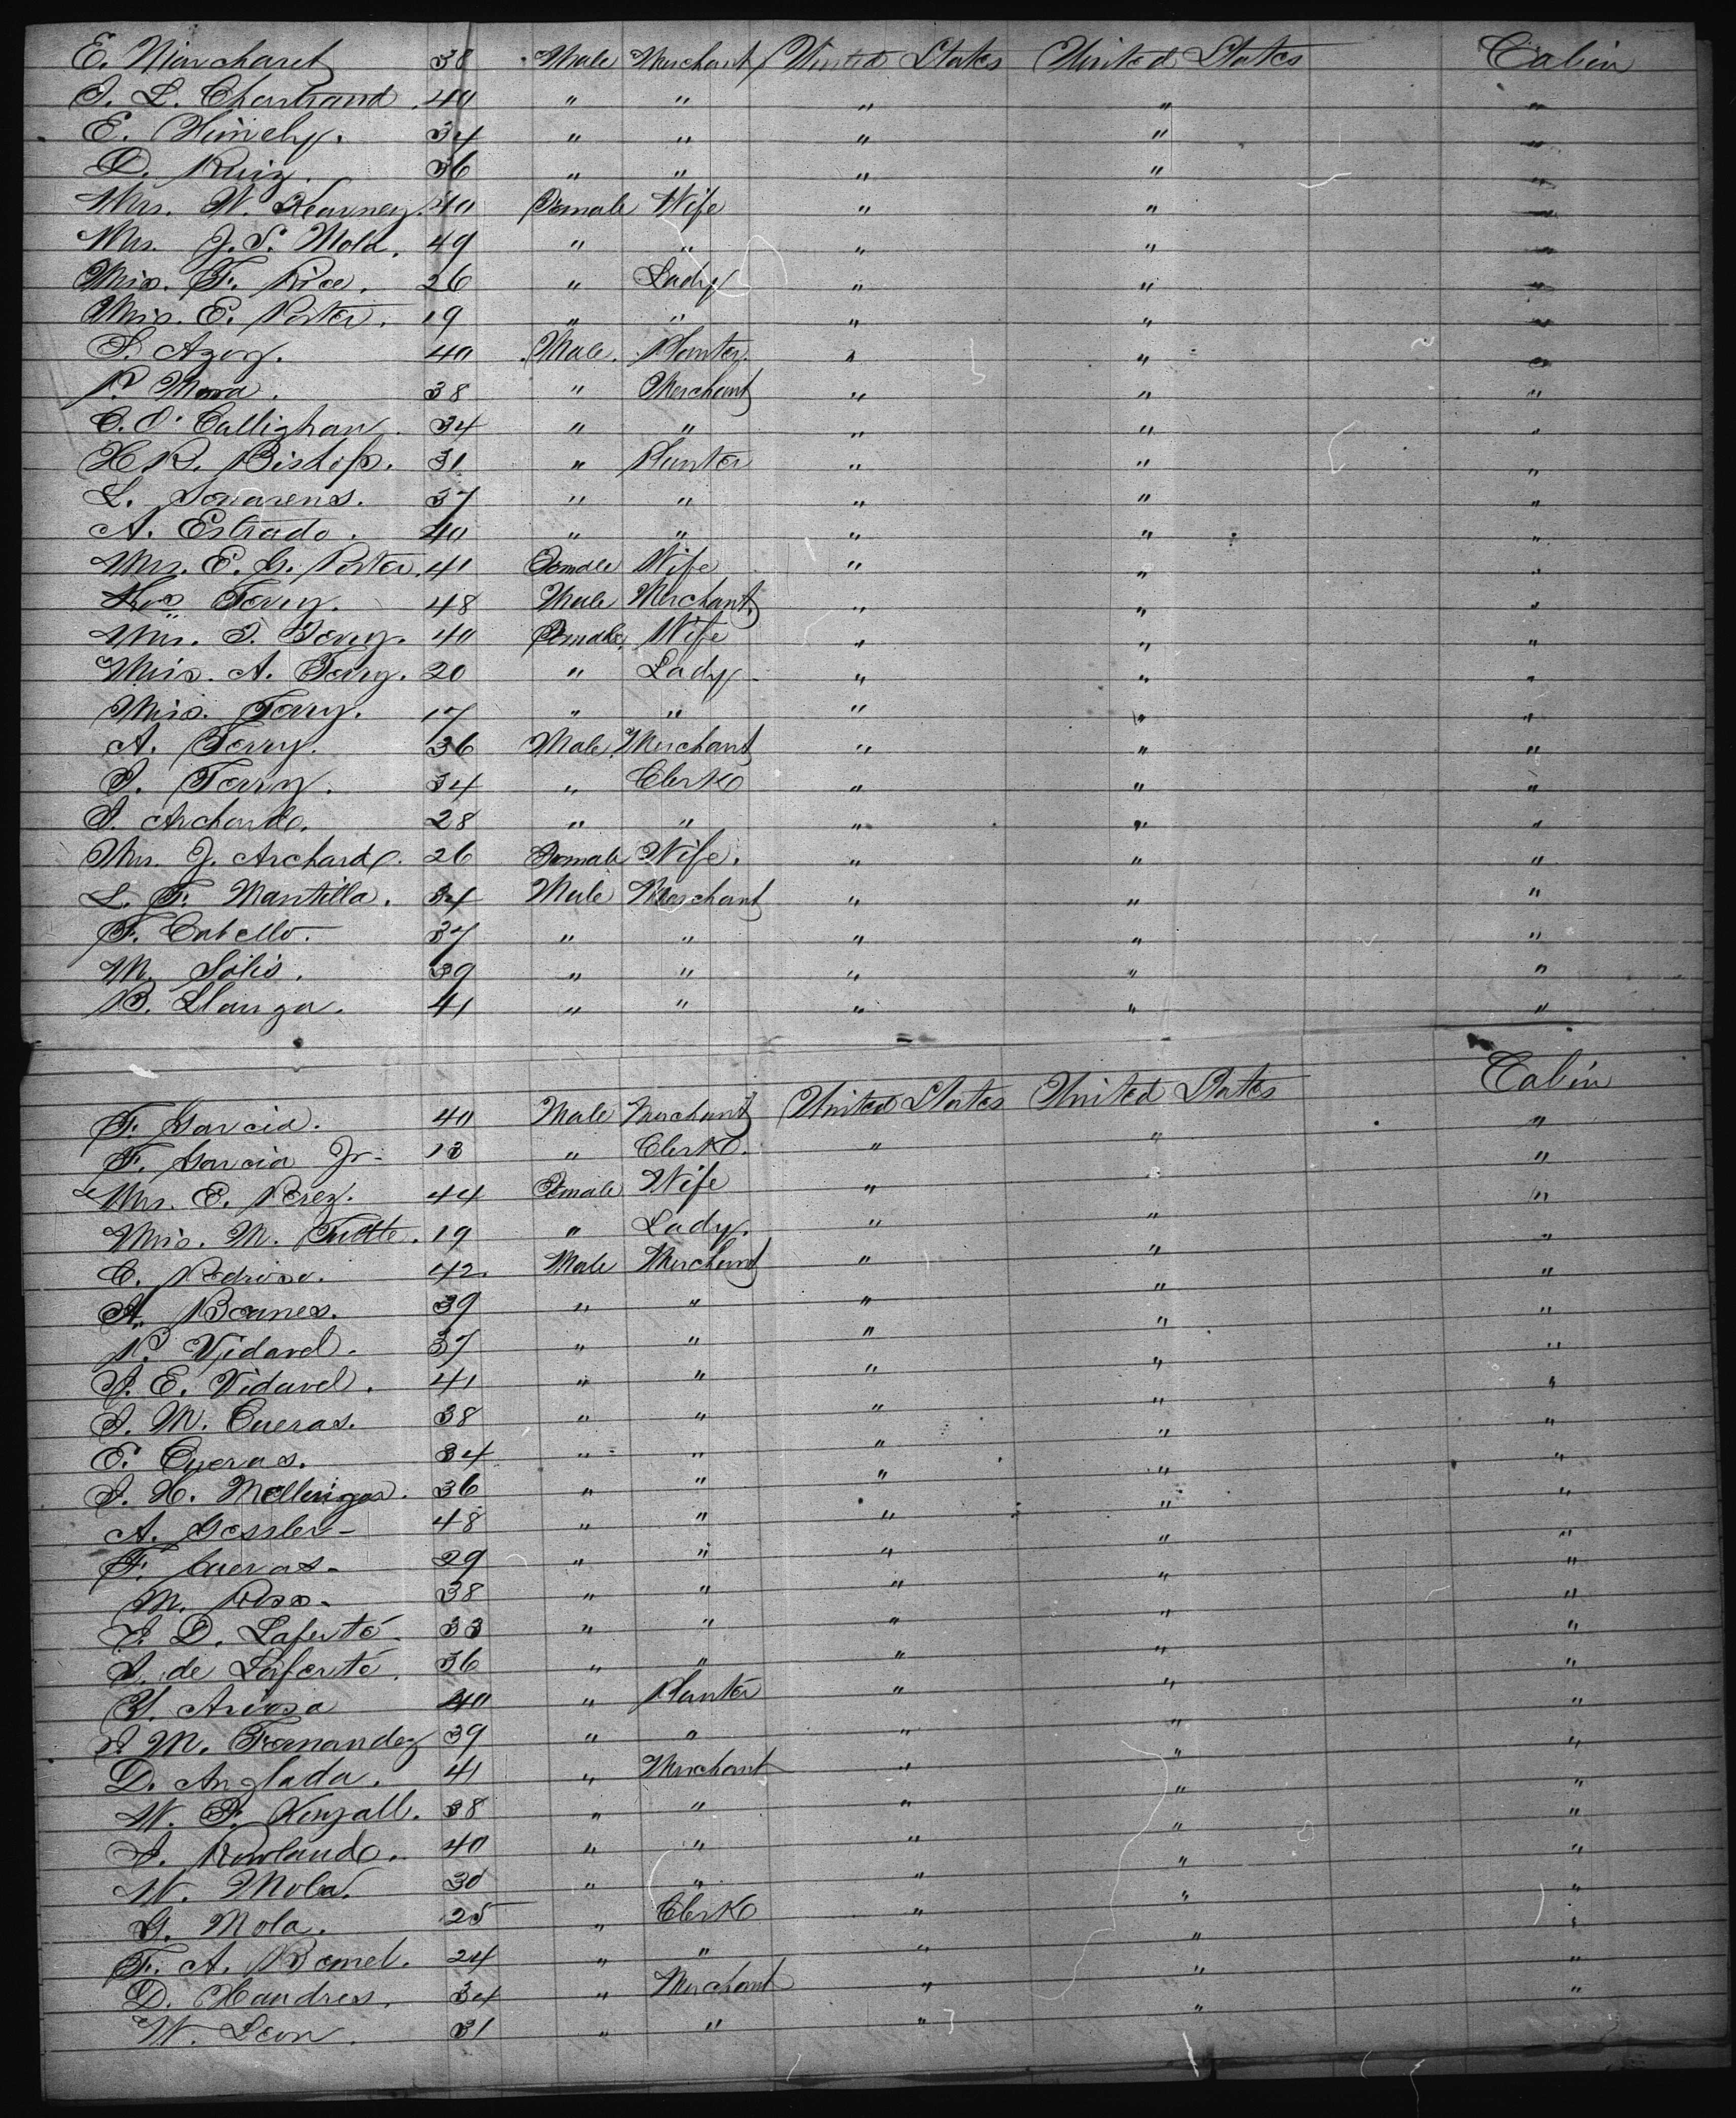 E. Marcharet 38 Male Merchant United States United States Cabin
J. L. Chartrand 40 " " " " "
E. Himely. 34 " " " " "
D. Ruiz. 36 " " " " "
Mrs. W. Kearney. 40 Female Wife " " "
Mrs. J. S. Mola. 49 " " " " "
Miss. F. Rice. 26 " Lady " " "
Miss. E. Porter. 19 " " " " "
S. Azoy. 40 Male. Planter. " " "
P. Mora. 38 " Merchant " " "
C. O'Callighan. 34 " " " " "
H R. Bishop. 31 " Planter " " "
L. 37 " " " " "
A. Estrado. 40 " " " " "
Mrs. E. G. Porter. 41 Female Wife " " "
Terry. 48 Male Merchant. " " "
Mrs. T. Terry. 40 Female. Wife " " "
Miss. A. Terry. 20 " Lady " " "
Miss. Terry. 17 " " " " "
A. Terry. 36 Male. Merchant " " "
J. Terry. 34 " Clerk " " "
J. Archard. 28 " " " " "
Mrs. J. Archard. 26 Female Wife. " " "
L. F. Mantilla. 34 Male Merchant " " "
F. Cabello. 37 " " " " "
M. Solis. 39 " " " " "
B. Llanga. 41 " " " " "
F. Garcia. 40 Male Merchant United States United States Cabin
F. Garcia Jr- 13 " Clerk. " " "
Mrs. E. Perez. 44 Female Wife " " "
Miss. M. Tuttle. 19 " Lady. " " "
C. Pedroso. 42. Male Merchant " " "
A. Barnes. 39 " " " " "
P. Vidard. 37 " " " " "
J. E. Vidard. 41 " " " " "
J. M. Cueras. 38 " " " " "
E. Cueras. 34 " " " " "
J. H. 36 " " " " "
A. Gessler- 48 " " " " "
F. Cueras- 29 " " " " "
M. Ross- 38 " " " " "
J. D. Laferté- 33 " " " " "
J. de Laferté. 36 " " " " "
Y. Ariosa 40 " Planter " " "
J M. Fernandez 39 " " " " "
D. Anglada. 41 " Merchant " " "
W. F. Kingall. 38 " " " " "
J. Rowland. 40 " " " " "
W. Mola. 30 " " " " "
G. Mola. 25 " Clerk " " "
F. A. 24 " " " " "
D. Handres. 34 " Merchant " " "
W. Leon. 31 " " " " "